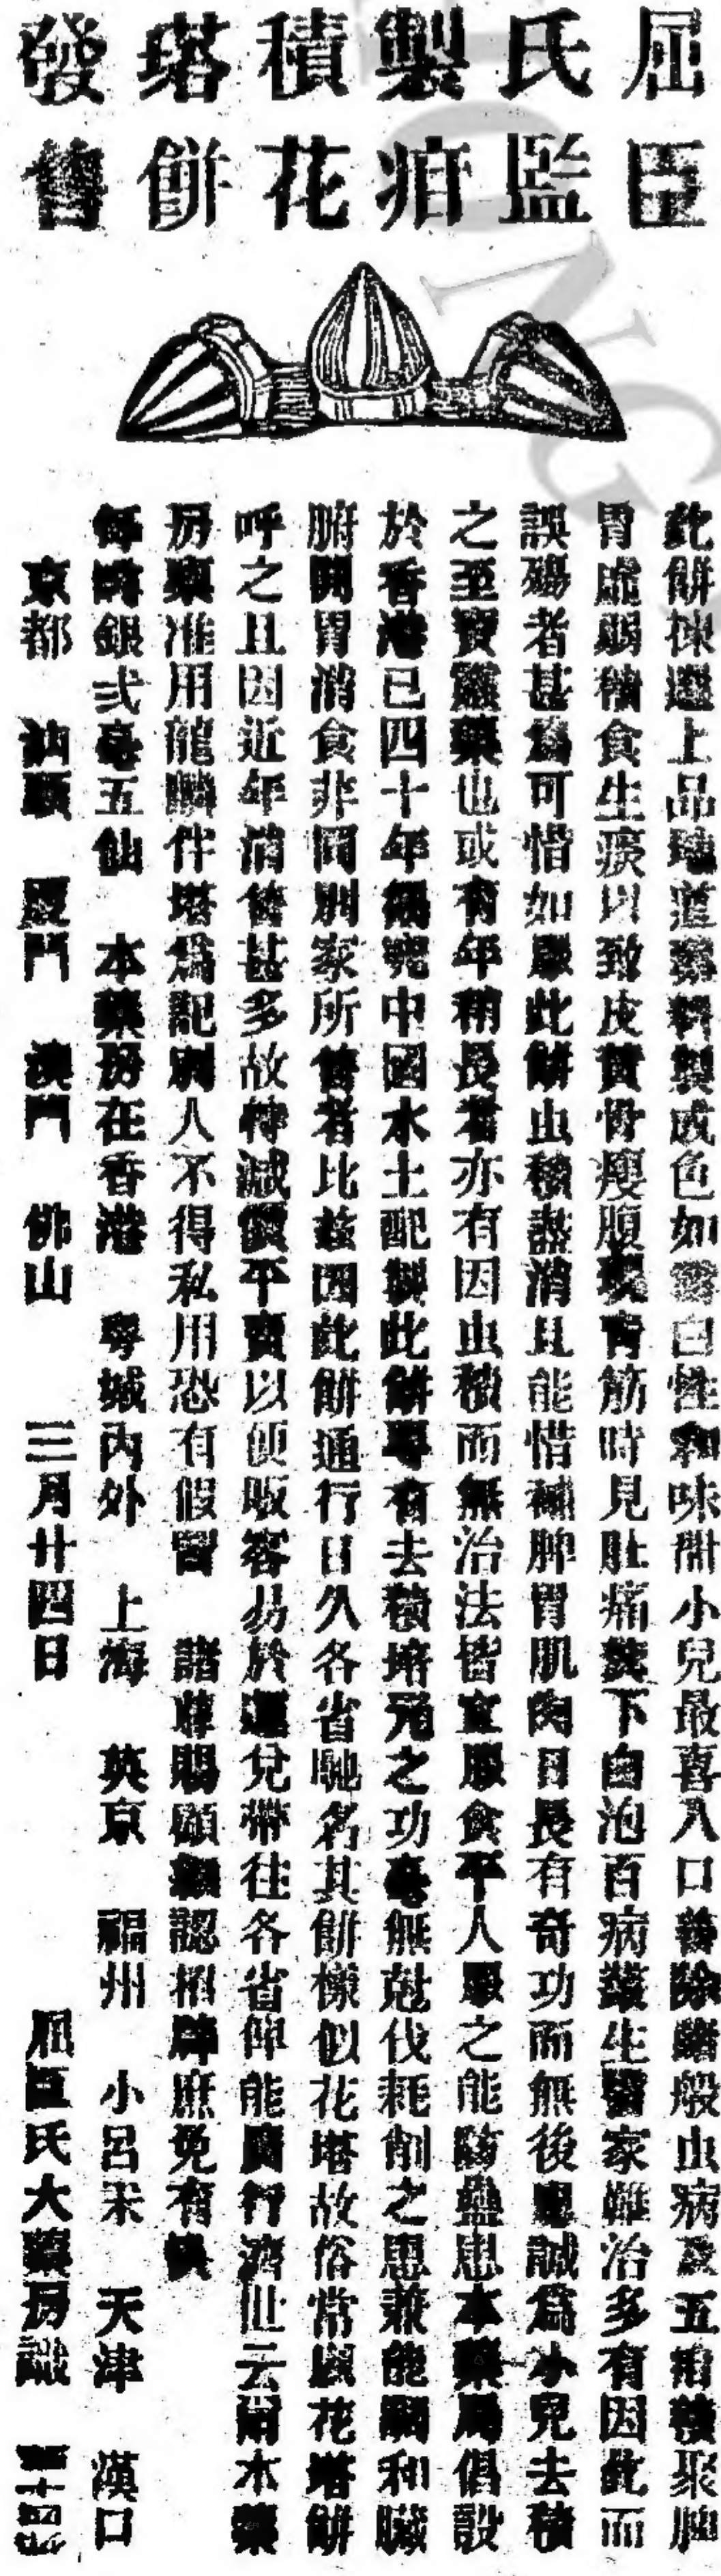 屈臣
氏監
製疳
積花
㙮餅
發售
此餅揀選上品地道藥料製成色如雪白性和味甜小兒最喜入口善除諸般虫病及五疳積聚脾
胃虛弱積食生痰以致皮黃骨瘦腹現青筋時見肚痛瀉下白泡百病叢生醫家難治多有因此而
誤殤者甚為可惜如服此餅虫積盡消且能惜補脾胃肌肉日長有奇功而無後患誠為小兒去積
之至寶靈藥也或有年稍長者亦有因虫積而無治法皆宜服食平人服之能防蠱患本藥局倡設
於香港已四十年講究中國水土配製此餅專有去積培元之功毫無尅伐耗削之患兼能調和臟
腑開胃消食非同別家所售者比茲因此餅通行日久各省馳名其餅樣似花塔故俗常以花塔餅
呼之且因近年消售甚多故特減價平賣以便販客易於運兌帶往各省俾能廣行濟世云爾本藥
房稟准用龍麟伴塔為記別人不得私用恐有假冒 諸尊賜顧細認招牌庶免有悞
每磅銀弍毫五仙 本藥房在香港 粵城內外 上海 英京 福州 小呂宋 天津 漢口
京都 汕頭 厦門 澳門 佛山 三月廿四日 屈臣氏大藥房識